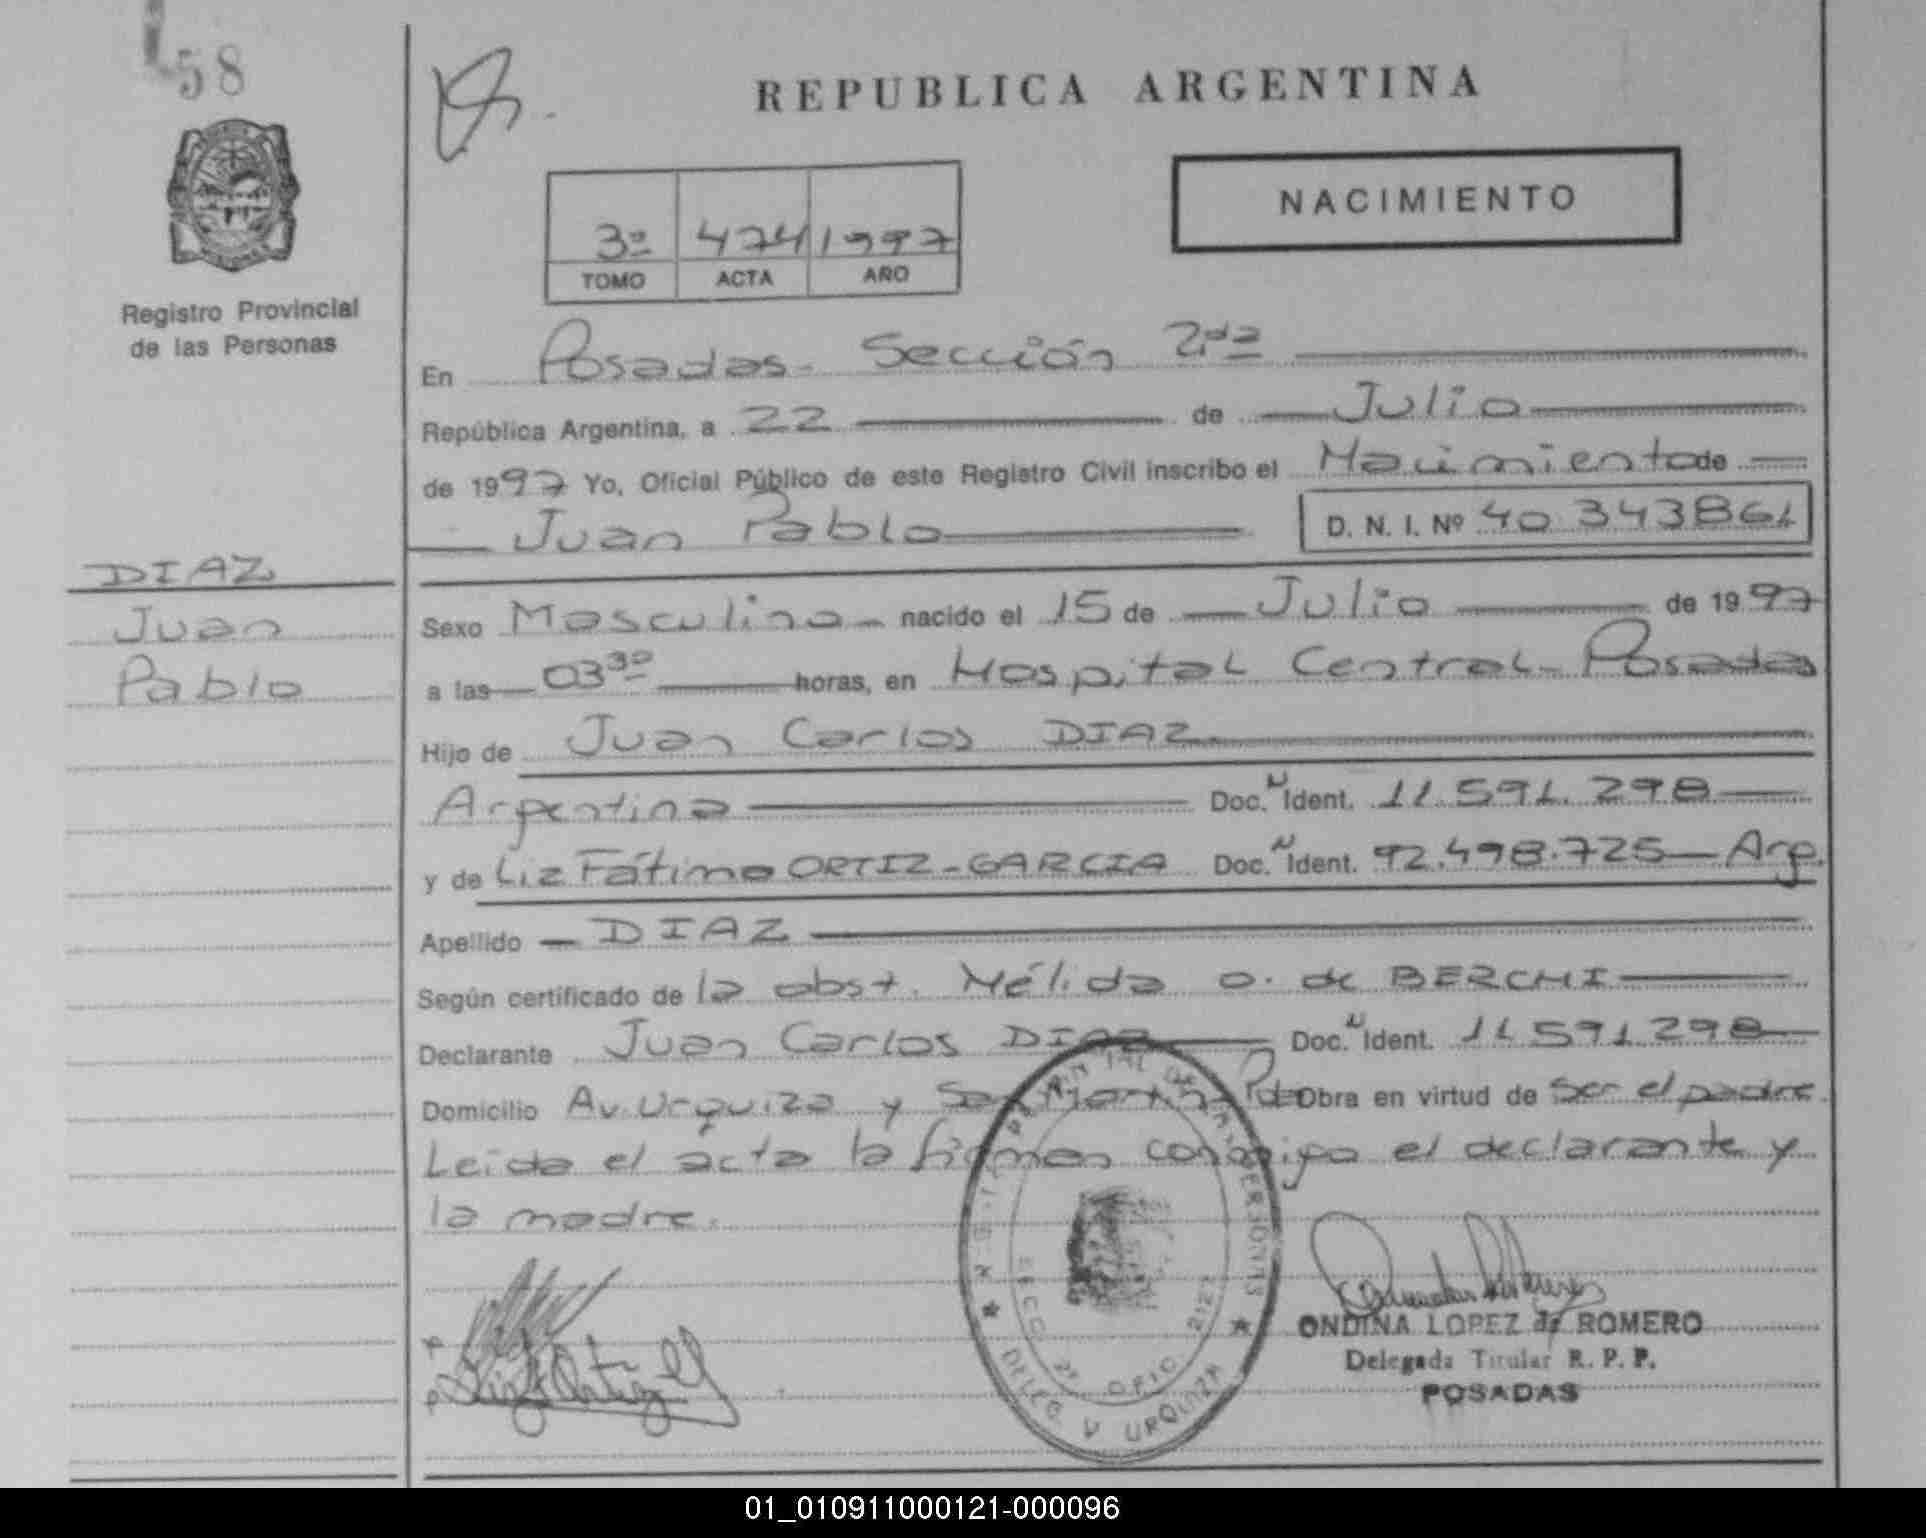 58
REPUBLICA ARGENTINA
NACIMIENTO
3º 474 1997
TOMO ACTA AÑO
Registro Provincial
de las Personas
En Posadas - Sección 2da
República Argentina, a 22 de Julio
de 1997 Yo, Oficial Público de este Registro Civil inscribo el Nacimiento de
Juan Pablo D. N. I. Nº 40 343861
DIAZ
Juan
Pablo
Sexo Masculino nacido el 15 de Julio de 1997
a las 03 30 horas, en Hospital Central - Posadas
Hijo de Juan Carlos DIAZ
Argentina Doc. N Ident. 11.591.298
y de Liz Fátima ORTIZ - GARCIA Doc. N Ident. 92.498.725 - Arg.
Apellido DIAZ
Según certificado de la obst. Nélida O. de BERCHI
Declarante Juan Carlos DIAZ Doc. N Ident. 11 591.298
Domicilio Av. Urquiza y San Martín Pdas Obra en virtud de ser el padre
Leida el acta la firman conmigo el declarante y
la madre.
SECC. 2ª OFIC. 2121
DELEG. V URQUIZA
ONDINA LOPEZ de ROMERO
Delegada Titular R. P. P.
POSADAS
01_010911000121-000096